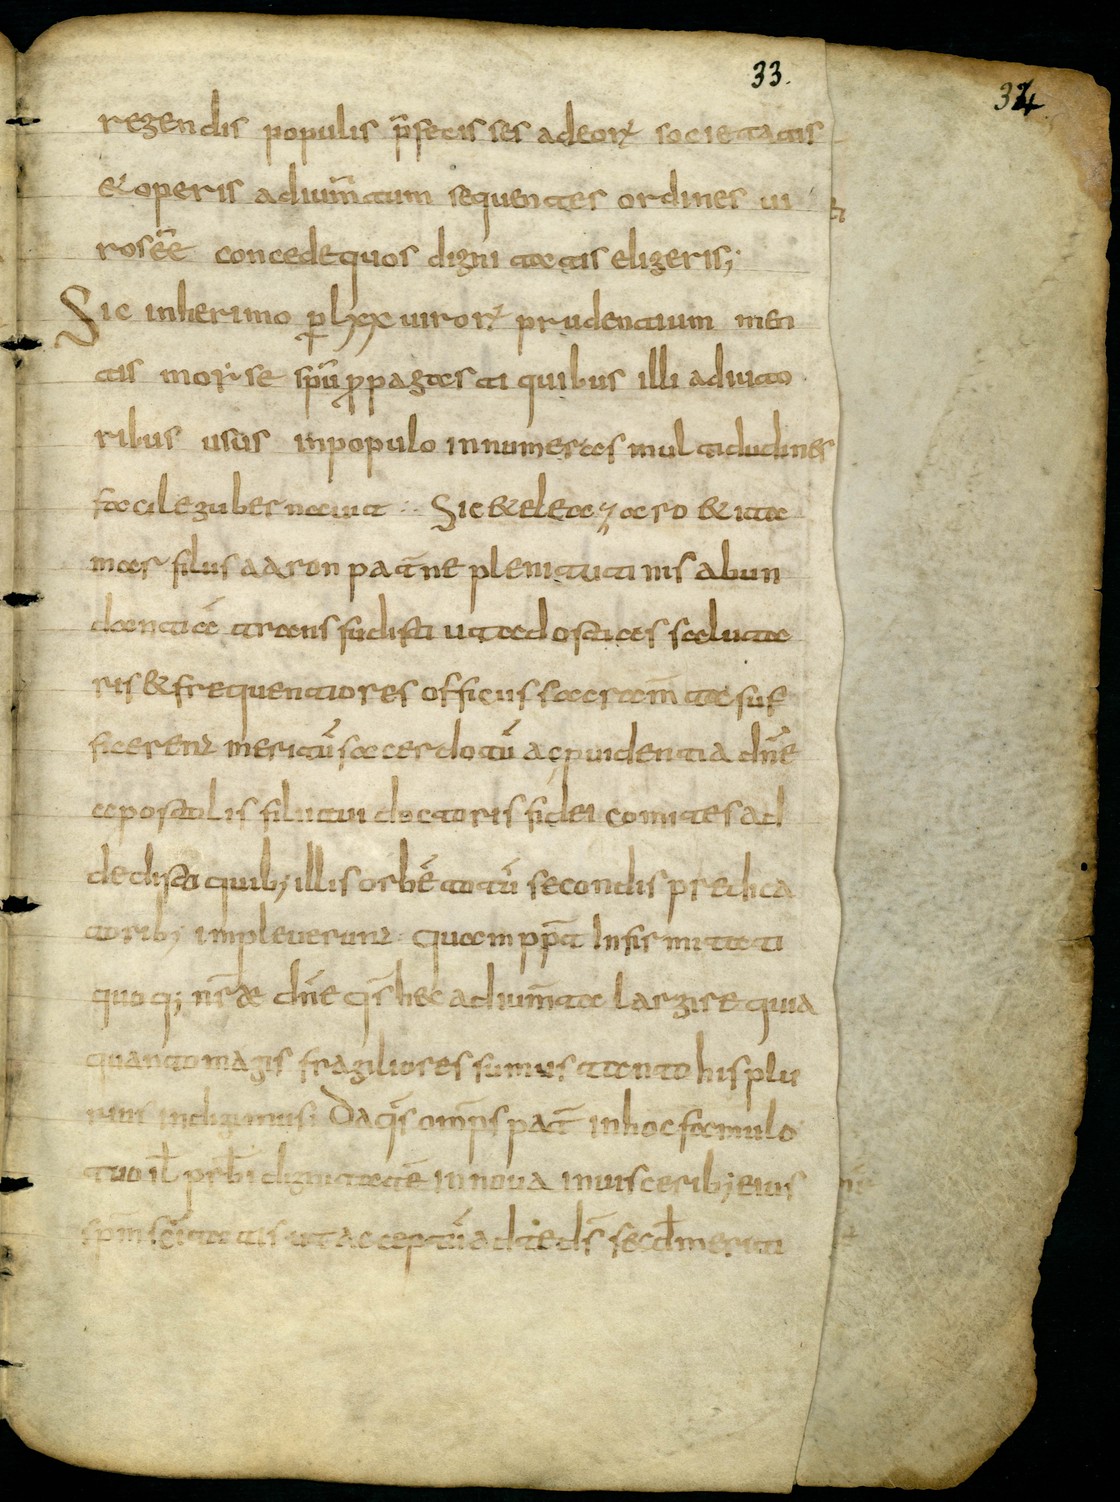 33.
34
regendis populis p̄fecis ses adeorꝝ societatis
& operis adium̄tum sequentes ordines ui
rosēe concede quos digni tatis eligeris;
Sic inherimo ꝑ lxx uirorꝝ prudentium men
tis moysse sp̄u ꝓpagasti quibus illi adiuto
ribus usus inpopulo innumeras multidudines
facile gubernauit. Sic & eleazaro & ita
mar filiis aaron pat̄ne plenitutinis abun
dantiā transfudisti ut ad ostias saluta
ris & frequentiores officiis sacram̄ta suf
ficerent meritū sacerdotū ac ꝓuidentia dn̄e
apostolis filii tui doctoris fidei comites ad
dedisti quib; illis orbē totū secondis predica
torib; impleuerunt quam ppt̄ Infirmitati
quoq; nr̄ae dn̄e qs̄ hec adium̄ta largire quia
quanto magis fragiliores sumus tanto his plu
ribus indigimus; Da qs̄ omp̄s pat̄ inhoc famulo
tuo ił prb̄i dignitatē innoua inuiscerib; eius
sp̄m sc̄itatis ut acceptū ad te ds̄ secd̄ meriti